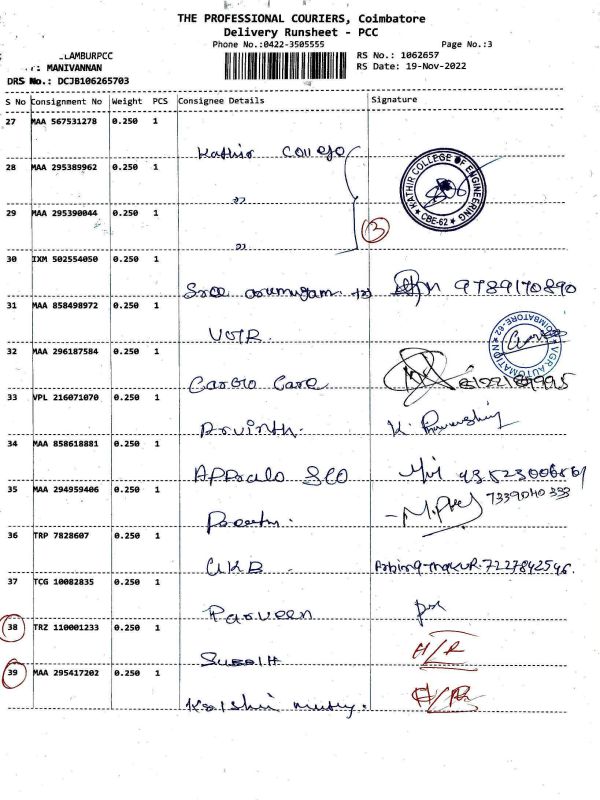 THE PROFESSIONAL COURIERS, Coimbatore
Delivery Runsheet - PCC
Phone No.:0422-3505555 Page No.:3
LAMBURPCC RS No.: 1062657
: MANIVANNAN RS Date: 19-Nov-2022
DRS No.: DCJB106265703
S No Consignment No Weight PCS Consignee Details Signature
27 MAA 567531278 0.250 1
Kathir College
28 MAA 295389962 0.250 1
KATHIR COLLEGE OF ENGINEERING
* CBE-62 *
29 MAA 295390044 0.250 1
3
30 IXM 502554050 0.250 1
Sree arumugam 9789170890
31 MAA 858498972 0.250 1
VGR
* VGR AUTOMATION * COIMBATORE-62
32 MAA 296187584 0.250 1
Cargo Care
33 VPL 216071070 0.250 1
Arvinth. K.
34 MAA 858618881 0.250 1
35 MAA 294959406 0.250 1
7339040333
36 TRP 7828607 0.250 1
7227842546.
37 TCG 10082835 0.250 1
Parveen
38 TRZ 110001233 0.250 1
H/R
39 MAA 295417202 0.250 1